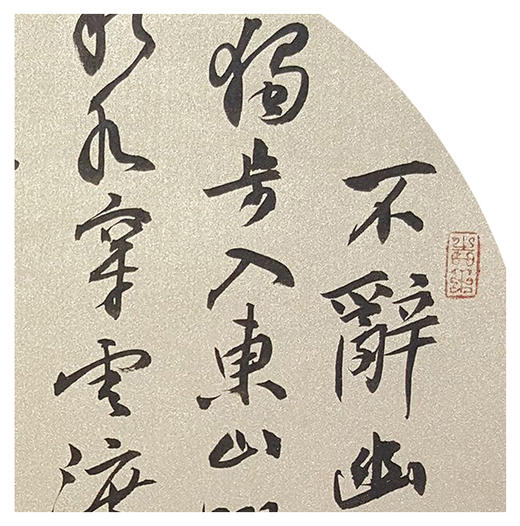 不辭幽
獨步入東山
水穿雲渡